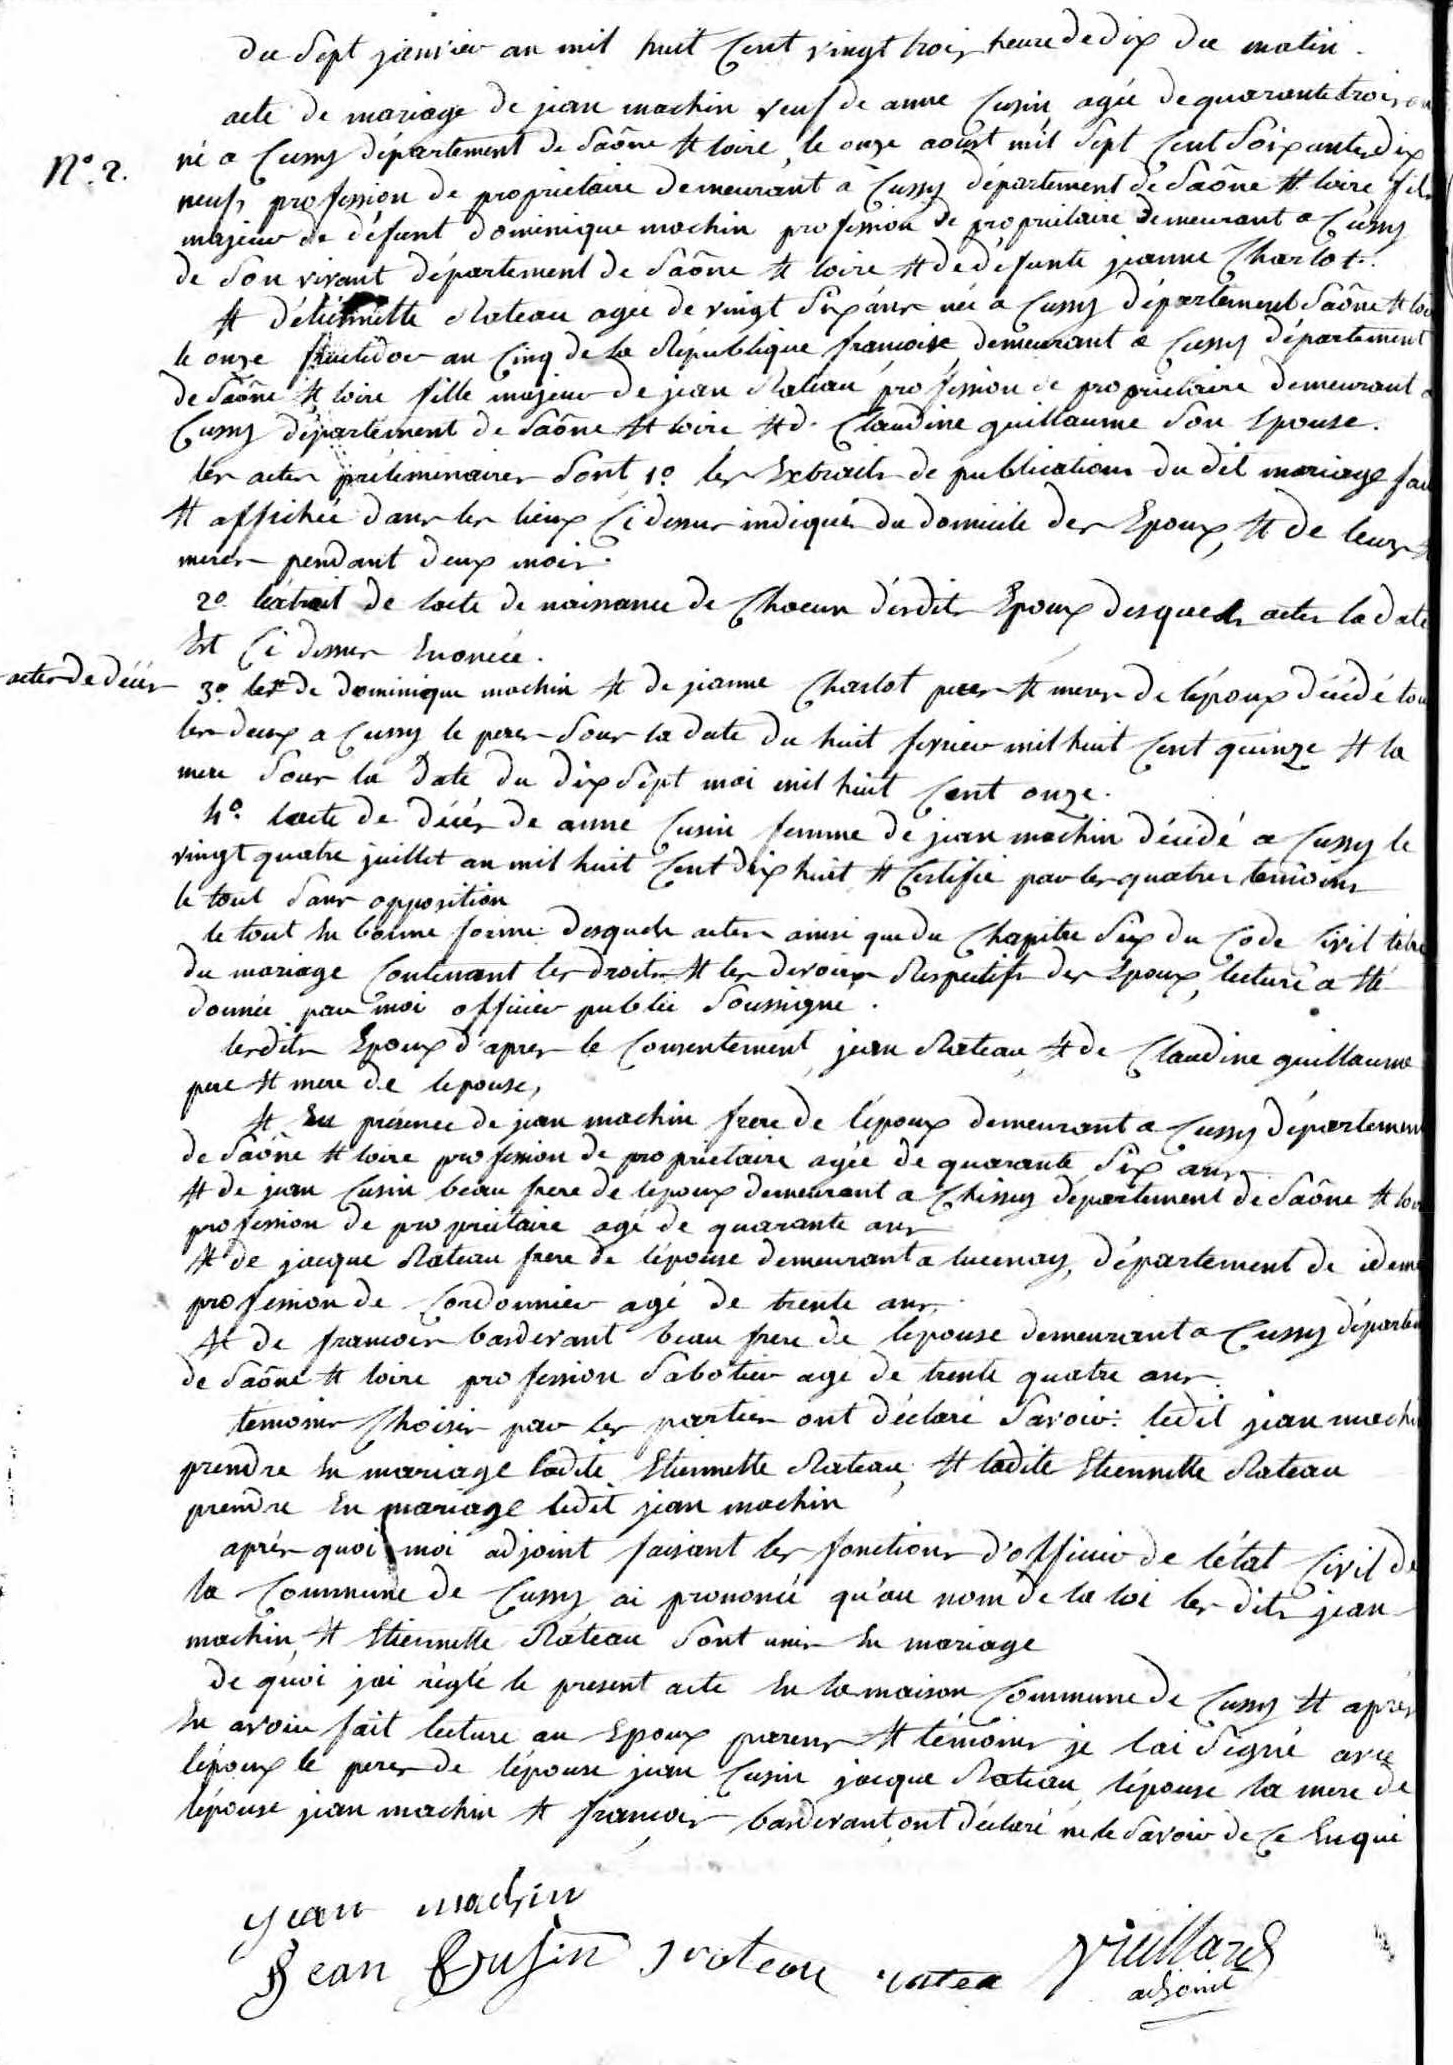 du Sept janvier an mil huit Cent vingt trois heure de dix du matin.
acte de mariage de jean machin veuf de anne Cusin agée de quarante trois an
N.° 2. né a Cussy département de Saône et loire, le onze aoust mil Sept Cent Soixante dix
neuf, profession de proprietaire demeurant a Cussy département de Saône et loire fils
majeur de défunt dominique machin profession de propriétaire demeurant a Cussy
de Son vivant département de Saône et loire et de défunte jeanne Charlot.
et détiennette Rateau agée de vingt Six ans née a Cussy département Saône et loi
le onze fructidor an Cinq de la République francoise, demeurant a Cussy département
de Saône et loire fille majeur de jean Rateau profession de proprietaire demeurant a
Cussy département de Saône et loire et d. Claudine guillaume Son Epouse.
les actes préliminaires Sont 1.° les Extraits de publications du dit mariage fai
et affichée dans les lieux Cidessus indiqués du domicile des Epoux, et de leurs
meres pendant deux mois.
2.° léxtrait de lacte de naissance de Chacun désdits Epoux desquels actes la date
Est Ci dessus Enoncée.
actes de décés 3.° les de dominique machin et de jeanne Charlot peres et meres de lépoux décédé tou
les deux a Cussy le peres Sous la date du huit fevrier mil huit Cent quinze et la
mere Sous la date du dix Sept mai mil huit Cent onze.
4.° lacte de décés de anne Cusin femme de jean machin décédé a Cussy le
vingt quatre juillet an mil huit Cent dix huit et Certifié par les quatres temoins
le tout Sans opposition
le tout En bonne forme. desquels actes ainsi que du Chapitre Six du Code Civil titre
du mariage Contenant les droits et les devoirs Respectifs des Epoux, lecture a été
donnée par moi officier public Soussigné.
lesdits Epoux d'apres le Consentement jean Rateau, et de Claudine guillaume
pere et mere de lepouse,
et En présence de jean machin frere de lépoux demeurant a Cussy départemen
de Saône et loire profession de propriétaire agée de quarante Six ans
et de jean Cusin beau frere de lepoux demeurant a Chissey département de Saône et loi
profession de propriétaire agé de quarante ans
et de jacque Rateau frere de lépouse demeurant a lucenay, département de idem
profession de Cordonnier agé de trente ans.
et de francois bardevant beau frere de lepouse demeurant a Cussy départem
de Saône et loire profession Sabotier agé de trente quatre ans.
temoins Choisis par les parties ont déclaré Savoir: ledit jean machi
prendre En mariage ladite Etiennette Rateau, et ladite Etiennette Rateau
prendre En mariage ledit jean machin
après quoi moi adjoint faisant les fonctions d'officier de létat Civil de
la Commune de Cussy ai prononcé qu'au nom de la loi les dits jean
machin et Etiennette Rateau Sont unis En mariage
de quoi jai réglé le present acte En la maison Commune de Cussy et aprés
En avoir fait lecture au Epoux parens et témoins je lai Signé avec
lépoux le peres de lépouse jean Cusin jacque Rateau, lépouse la mere de
lépouse jean machin et francois bardevant ont déclaré ne le Savoir de Ce Enqui
jean machin
Jean Cusin J rateau ratea Vieillard
adjoint